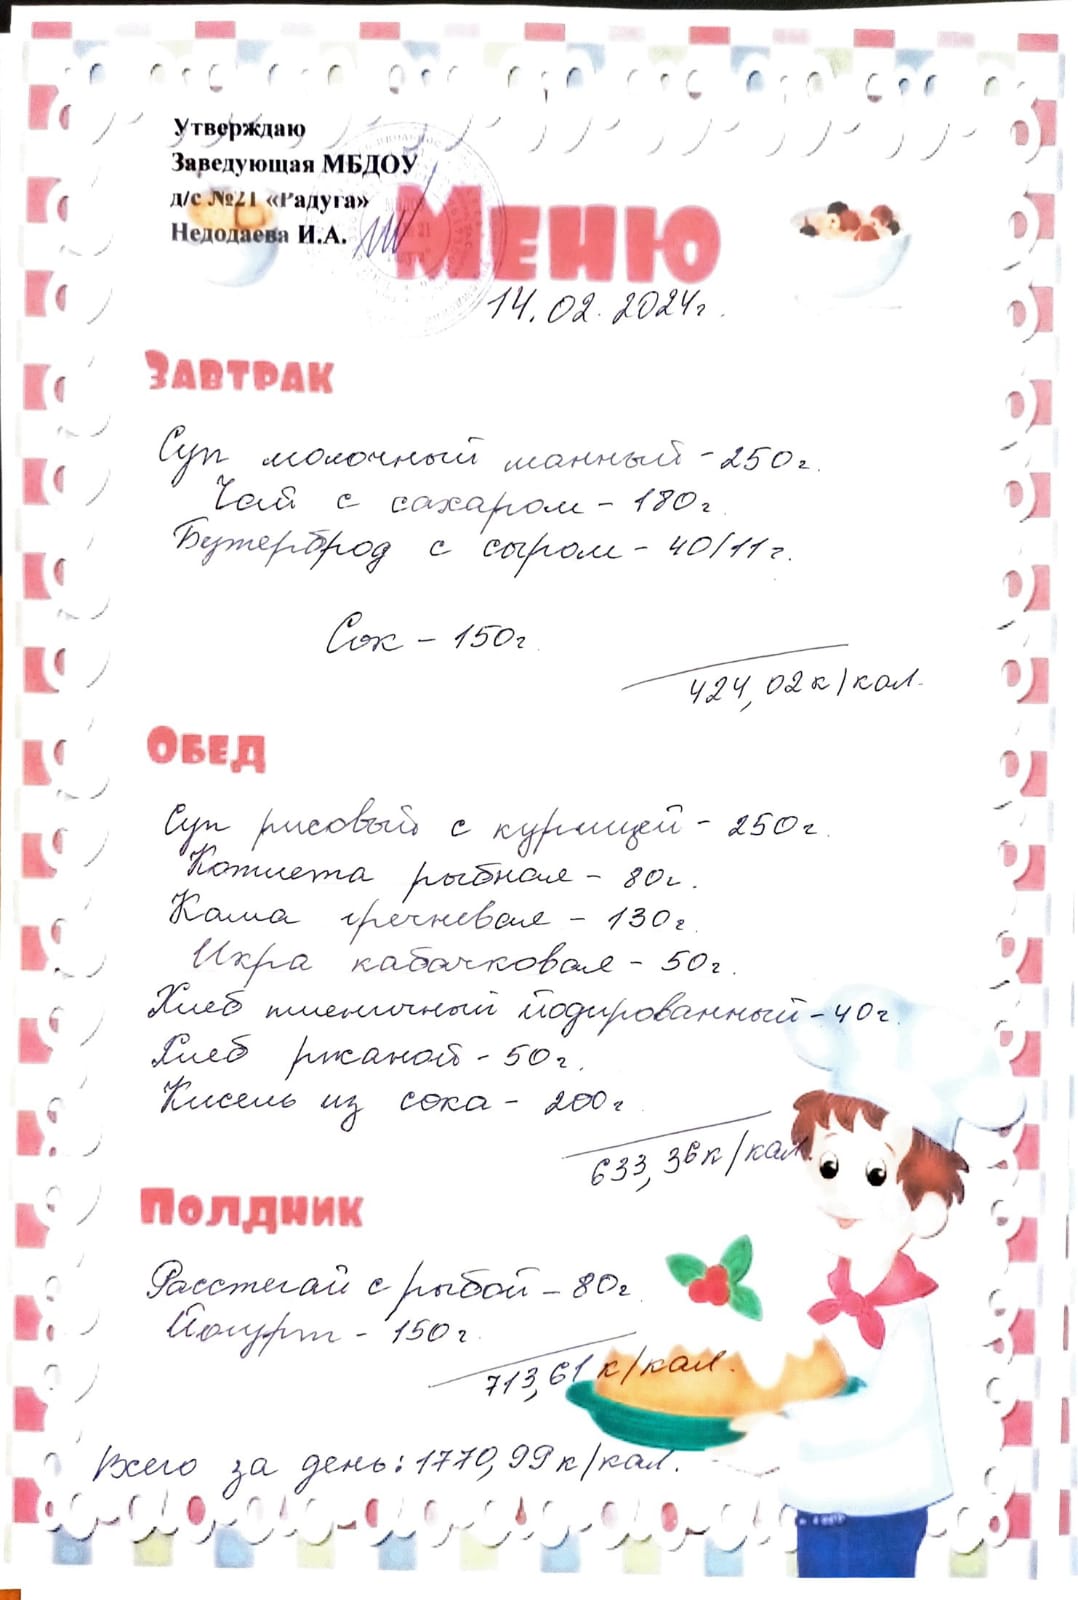 Утверждаю
Заведующая МБДОУ
д/с №21 «Радуга»
Недодаева И.А.
Меню
14.02.2024г.
Завтрак
Суп молочный манный - 250г.
Чай с сахаром - 180г.
Бутерброд с сыром - 40/11г.
Сок - 150г.
424,02к/кал.
Обед
Суп рисовый с курицей - 250г.
Котлета рыбная - 80г.
Каша гречневая - 130г.
Икра кабачковая - 50г.
Хлеб пшеничный йодированный - 40г.
Хлеб ржаной - 50г.
Кисель из сока - 200г.
633,36к/кал.
Полдник
Расстегай с рыбой - 80г.
Йогурт - 150г.
713,61 к/кал.
Всего за день: 1770,99к/кал.